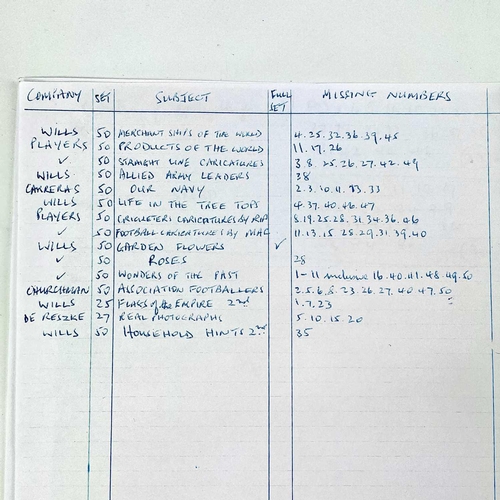 COMPANY SET SUBJECT FULL SET MISSING NUMBERS
WILLS 50 MERCHANT SHIPS OF THE WORLD 4.25.32.36.39.45
PLAYERS 50 PRODUCTS OF THE WORLD 11.17.26
✓ 50 STRAIGHT LINE CARICATURES 3.8.25.26.27.42.49
WILLS 50 ALLIED ARMY LEADERS 38
CARRERAS 50 OUR NAVY 2.3.10.11.33
WILLS 50 LIFE IN THE TREE TOPS 4.37.40.46.47
PLAYERS 50 CRICKETERS CARICATURES BY RIP 8.19.25.28.31.34.36.46
✓ 50 FOOTBALL CARICATURES BY MAC 11.13.15 28.29.31.39.40
WILLS 50 GARDEN FLOWERS ✓
✓ 50 ROSES 28
✓ 50 WONDERS OF THE PAST 1-11 inclusive 16.40.41.48.49.50
CHURCHMAN 50 ASSOCIATION FOOTBALLERS 2.5.6.8.23.26.27.40.47.50
WILLS 25 FLAGS of the EMPIRE 2nd 1.7.23
DE RESZKE 27 REAL PHOTOGRAPHS 5.10.15.20
WILLS 50 HOUSEHOLD HINTS 2nd 35